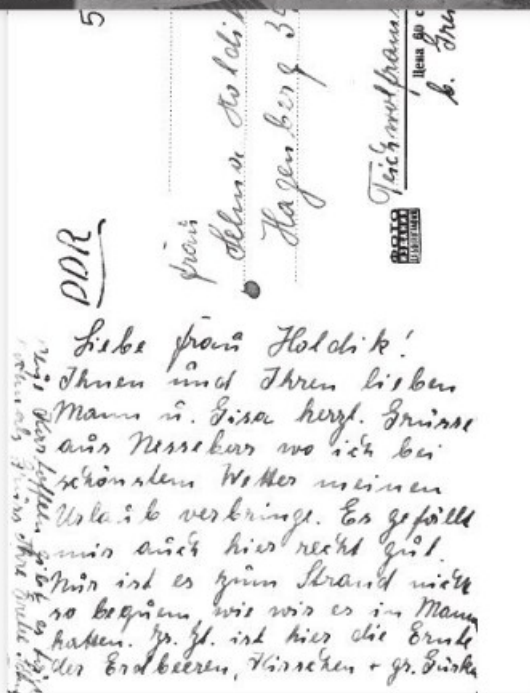 5
DDR
Frau
Selma Holdik
Hagenberg 34
Teichwolframs
b. Grei
Цена 60 с
ФОТО
Liebe Frau Holdik!
Ihnen und Ihren lieben
Mann u. Gisa herzl. Grüsse
aus Nessebar wo ich bei
schönstem Wetter meinen
Urlaub verbringe. Es gefällt
mir auch hier recht gut.
Nur ist es zum Strand nicht
so bequem wie wir es in Mam
hatten. Zr. Zt. ist hier die Ernte
der Erdbeeren, Kirschen + gr. Gurken
Kartoffeln gibt es
nochmals Grüss Ihre